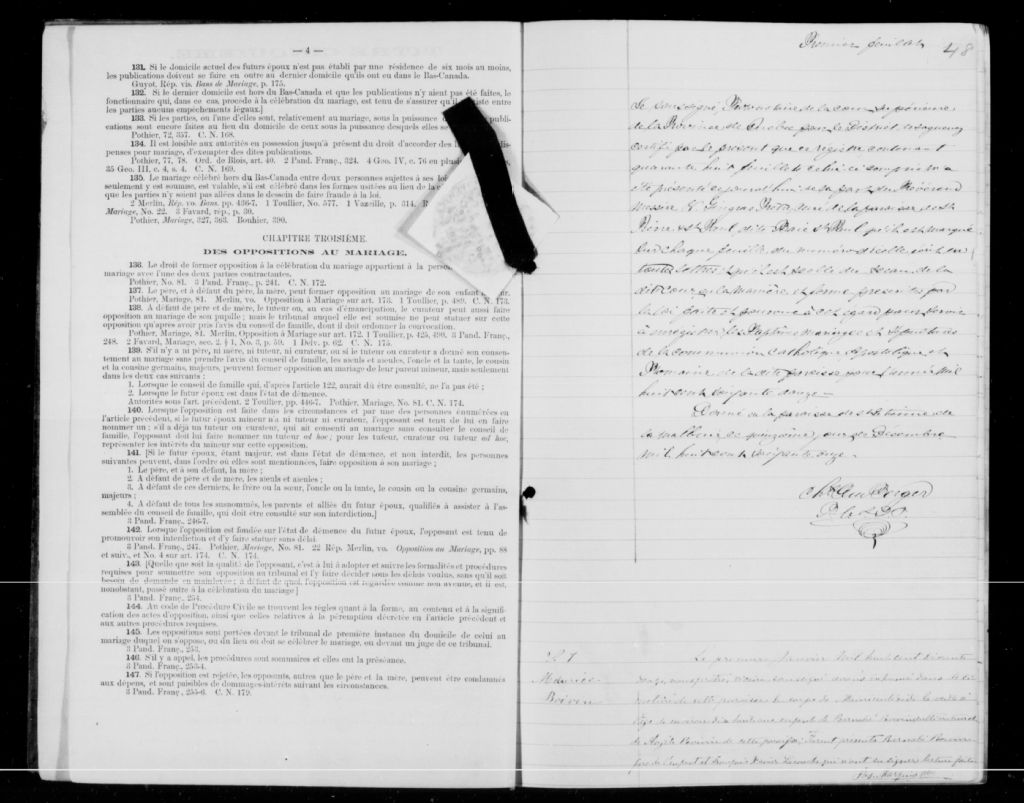 — 4 —
131. Si le domicile actuel des futurs époux n'est pas établi par une résidence de six mois au moins,
les publications doivent se faire en outre au dernier domicile qu'ils ont eu dans le Bas-Canada.
Guyot, Rép. vis. Bans de Mariage, p. 175.
132. Si le dernier domicile est hors du Bas-Canada et que les publications n'y aient pas été faites, le
fonctionnaire qui, dans ce cas, procède à la célébration du mariage, est tenu de s'assurer qu'il
entre
les parties aucuns empêchements légaux.]
133. Si les parties, ou l'une d'elles sont, relativement au mariage, sous la puissance
cations sont encore faites au lieu du domicile de ceux sous la puissance desquels elles se
Pothier, 72, 357. C. N. 168.
134. Il est loisible aux autorités en possession jusqu'à présent du droit d'accorder des
penses pour mariage, d'exempter des dites publications.
Pothier, 77, 78. Ord. de Blois, art. 40. 2 Pand. Franç., 324. 4 Geo. IV, c. 76 en
35 Geo. III, c. 4, s. 4. C. N. 169.
135. Le mariage célébré hors du Bas-Canada entre deux personnes sujettes à ses
seulement y est soumise, est valable, s'il est célébré dans les formes usitées au lieu de la
que les parties n'y soient pas allées dans le dessein de faire fraude à la loi.
2 Merlin, Rép. vo. Bans. pp. 436-7. 1 Toullier, No. 577. 1 Vazeille, p. 314.
Mariage, No. 22. 3 Favard, rép., p. 30.
Pothier, Mariage, 327, 363. Bouhier, 390.
CHAPITRE TROISIÉME.
DES OPPOSITIONS AU MARIAGE.
136. Le droit de former opposition à la célébration du mariage appartient à la
mariage avec l'une des deux parties contractantes.
Pothier, No. 81. 3 Pand. Franç., p. 241. C. N. 172.
137. Le père, et à défaut du père, la mère, peut former opposition au mariage de son enfant
Pothier, Mariage, 81. Merlin, vo. Opposition à Mariage sur art. 173. 1 Toullier, p. 489. C. N. 173.
138. A défaut de père et de mère, le tuteur ou, au cas d'émancipation, le curateur peut aussi faire
opposition au mariage de son pupille; mais le tribunal auquel elle est soumise ne peut statuer sur cette
opposition qu'après avoir pris l'avis du conseil de famille, dont il doit ordonner la convocation.
Pothier, Mariage, 81. Merlin, Opposition à Mariage sur art. 172. 1 Toullier, p. 425, 490. 3 Pand. Franç.,
248. 2 Favard, Mariage, sec. 2, § 1, No. 3, p. 59. 1 Delv. p. 62. C. N. 175.
139. S'il n'y a ni père, ni mère, ni tuteur, ni curateur, ou si le tuteur ou curateur a donné son consen-
tement au mariage sans prendre l'avis du conseil de famille, les aïeuls et aïeules, l'oncle et la tante, le cousin
et la cousine germains, majeurs, peuvent former opposition au mariage de leur parent mineur, mais seulement
dans les deux cas suivants :
1. Lorsque le conseil de famille qui, d'après l'article 122, aurait dû être consulté, ne l'a pas été ;
2. Lorsque le futur époux est dans l'état de démence.
Autorités sous l'art. précédent. 2 Toullier, pp. 446-7. Pothier, Mariage, No. 81. C. N. 174.
140. Lorsque l'opposition est faite dans les circonstances et par une des personnes énumérées en
l'article précédent, si le futur époux mineur n'a ni tuteur ni curateur, l'opposant est tenu de lui en faire
nommer un ; s'il a déjà un tuteur ou curateur, qui ait consenti au mariage sans consulter le conseil de
famille, l'opposant doit lui faire nommer un tuteur ad hoc; pour les tuteur, curateur ou tuteur ad hoc,
représenter les intérêts du mineur sur cette opposition.
141. [Si le futur époux, étant majeur, est dans l'état de démence, et non interdit, les personnes
suivantes peuvent, dans l'ordre où elles sont mentionnées, faire opposition à son mariage ;
1. Le père, et à son défaut, la mère ;
2. A défaut de père et de mère, les aïeuls et aïeules ;
3. A défaut de ces derniers, le frère ou la sœur, l'oncle ou la tante, le cousin ou la cousine germains,
majeurs ;
4. A défaut de tous les susnommés, les parents et alliés du futur époux, qualifiés à assister à l'as-
semblée du conseil de famille, qui doit être consulté sur son interdiction.]
3 Pand. Franç., 246-7.
142. Lorsque l'opposition est fondée sur l'état de démence du futur époux, l'opposant est tenu de
promouvoir son interdiction et d'y faire statuer sans délai.
3 Pand. Franç., 247. Pothier, Mariage, No. 81. 22 Rép. Merlin, vo. Opposition au Mariage, pp. 88
et suiv., et No. 4 sur art. 174. C. N. 174.
143. [Quelle que soit la qualité de l'opposant, c'est à lui à adopter et suivre les formalités et procédures
requises pour soumettre son opposition au tribunal et l'y faire décider dans les délais voulus, sans qu'il soit
besoin de demande en mainlevée ; à défaut de quoi, l'opposition est regardée comme non avenue, et il est,
nonobstant, passé outre à la célébration du mariage.]
3 Pand. Franç., 254.
144. Au code de Procédure Civile se trouvent les règles quant à la forme, au contenu et à la signifi-
cation des actes d'opposition, ainsi que celles relatives à la péremption décrétée en l'article précédent et
aux autres procédures requises.
145. Les oppositions sont portées devant le tribunal de première instance du domicile de celui au
mariage duquel on s'oppose, ou du lieu où doit se célébrer le mariage, ou devant un juge de ce tribunal.
3 Pand. Franç., 253.
146. S'il y a appel, les procédures sont sommaires et elles ont la préséance.
3 Pand. Franç., 253-4.
147. Si l'opposition est rejetée, les opposants, autres que le père et la mère, peuvent être condamnés
aux dépens, et sont passibles de dommages-intérêts suivant les circonstances.
3 Pand. Franç., 255-6. C. N. 179.
Premier feuillet 48
Je soussigné, Protonotaire de la cour Supérieure
de la Province de Québec pour le District de Saguenay
certifie par le présent que ce registre contenant
quarante huit feuillets celui ci compris m'a
été présenté ce jourd'hui de la part du Révérend
Messire Gingras Prêtre curé de la paroisse de St
Pierre et St Paul dite Baie St Paul qu'il est marqué
sur chaque feuillet du numéro d'icelle écrit en
toutes lettres qu'il est scellé du sceau de la
dite cour en la manière et forme prescrites par
la loi faite et pourvue à cet égard pour servir
à enregistrer les Baptêmes Mariages et Sépultures
de la communion Catholique Apostolique et
Romaine de la dite paroisse pour l'année mil
huit cent soixante douze —
Donné en la paroisse de St Etienne de
la Malbaie ce jour de Décembre
mil huit cent soixante onze -
Chs Du Berger
S. 1
Maurice
Boivin
Le premier Janvier mil huit cent soixante
douze, nous prêtre vicaire soussigné avons inhumé dans le ci-
metière de cette paroisse le corps de
âgé de environ dix huit enfant de Barnabé Boivin
de cette paroisse; Furent présents Barnabé Boivin
père de l'enfant et François Xavier qui n'ont su signer lecture faite